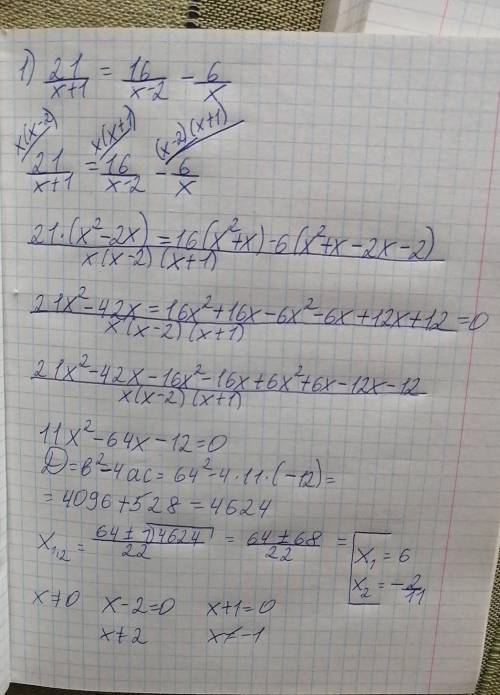 1) 21/(x+1) = 16/(x-2) - 6/x
x(x-2) x(x+1) (x-2)(x+1)
21/(x+1) = 16/(x-2) - 6/x
21·(x²-2x) = 16(x²+x)-6(x²+x-2x-2)
x(x-2)(x+1)
21x²-42x = 16x²+16x-6x²-6x+12x+12 = 0
x(x-2)(x+1)
21x²-42x-16x²-16x+6x²+6x-12x-12
x(x-2)(x+1)
11x²-64x-12=0
D=в²-4ac= 64²-4·11·(-12)=
= 4096+528 = 4624
x₁,₂ = (64±√4624)/22 = (64±68)/22 = [x₁ = 6
x₂ = -2/11
x≠0 x-2=0 x+1=0
x≠2 x≠-1